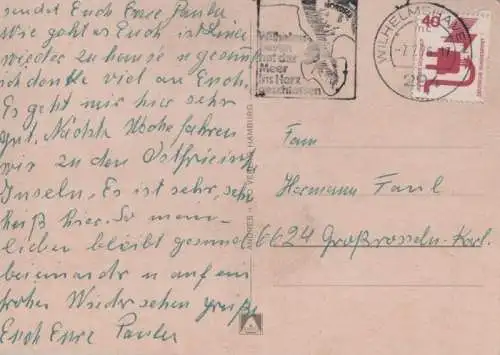 sendet Euch Eure Paula
Wie geht es Euch ist Eure
wieder zu hause u gesund
ich denke viel an Euch.
Es geht mir hier sehr
gut. Nächste Woche fahren
wir zu den Ostfriesisch
Inseln. Es ist sehr, sehr
heiß hier. So mein
lieber bleibt gesund
beieinander u auf ein
frohes Wiedersehen grüßt
Euch Eure Paula
Wilhelms-
haven
hat der
Meer
ins Herz
geschlossen
WILHELMSHAVEN
29
40
DEUTSCHE BUNDESPOST
HAMBURG
Fam
Hermann Faul
6624 Großrosseln-Karl.